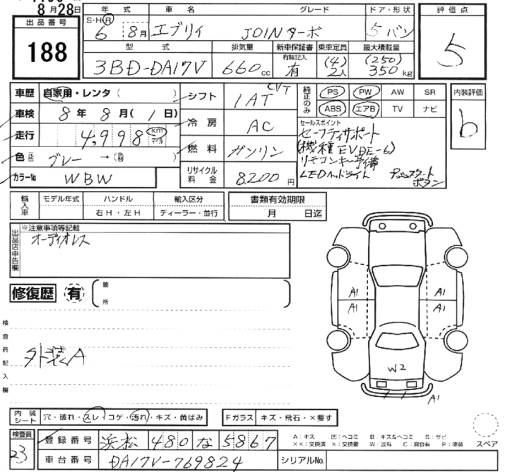 8月28日
出品番号 188
S・H・R 年式 車名 グレード ドア・形状
6 8月 エブリイ JOINターボ 5 バン
型式 排気量 新車保証書 乗車定員 最大積載量
3BD-DA17V 660cc 有 (4)2人 (250)350kg
評価点
5
車歴 自家用・レンタ( )
車検 8年8月( 1日)
走行 4,998 km
色 グレー →
カラーNo WBW
シフト 1AT CVT
冷房 AC
燃料 ガソリン
リサイクル料金 8200円
純正のみ PS PW AW SR
ABS エアB TV ナビ
セールスポイント
セーフティサポート
リモコンキー予備
LEDヘッドライト プッシュスタートボタン
内装評価
b
輸入車 モデル年式 ハンドル 輸入区分
右H・左H ディーラー・並行
書類有効期限
月 日迄
出品店申告欄
※注意事項等記載
オーディオレス
修復歴 有 箇所
検査員記入欄
外装A
A1 A1
A1 A1
W2
A1
内装シート 穴・破れ・スレ・コゲ・汚れ・キズ・黄ばみ
Fガラス キズ・飛石・×要す
検査員 23
登録番号 浜松 480 な 5867
車台番号 DA17V-769824
シリアルNo
スペア